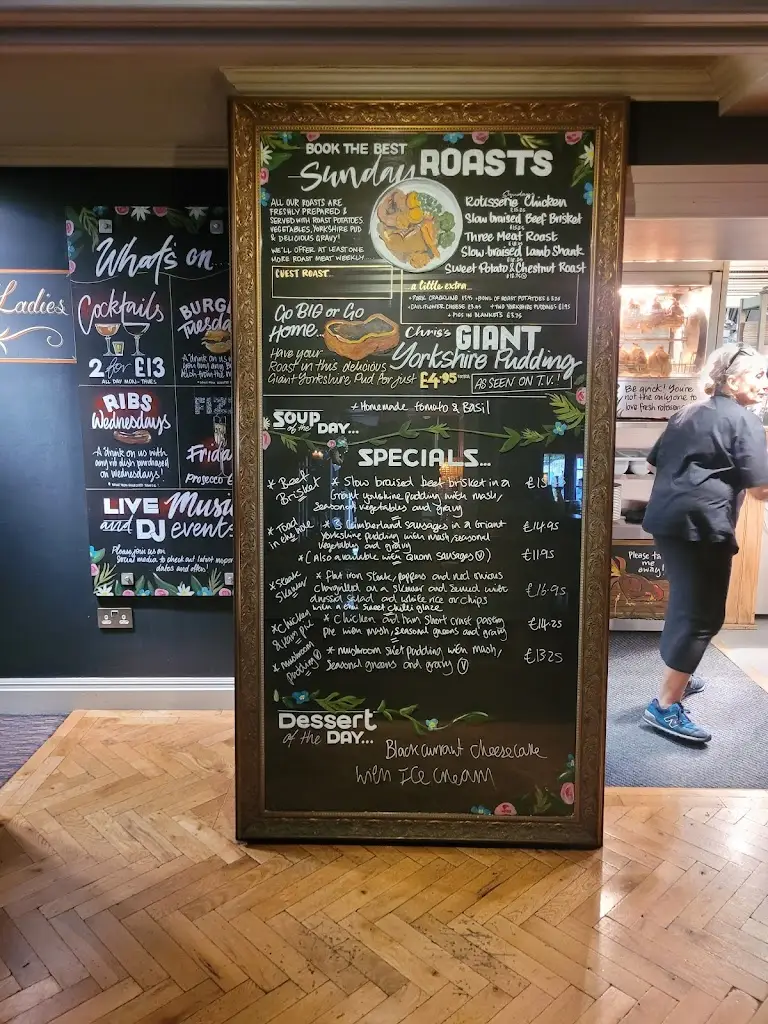 BOOK THE BEST
Sunday ROASTS
ALL OUR ROASTS ARE
FRESHLY PREPARED &
SERVED WITH ROAST POTATOES
VEGETABLES, YORKSHIRE PUD
& DELICIOUS GRAVY!
WE'LL OFFER AT LEAST ONE
MORE ROAST MEAT WEEKLY
GUEST ROAST
Rotisserie Chicken
Slow braised Beef Brisket
Three Meat Roast
Slow-braised Lamb Shank
Sweet Potato & Chestnut Roast
a little extra...
• PORK CRACKLING
• BOWL OF ROAST POTATOES
• CAULIFLOWER CHEESE
• TWO YORKSHIRE PUDDINGS
• PIGS IN BLANKETS
Go BIG or Go
Home...
Have your
Roast in this delicious
Giant Yorkshire Pud for just £4.95
Chris's GIANT
Yorkshire Pudding
AS SEEN ON T.V!
SOUP
of the DAY...
* Homemade tomato & Basil
SPECIALS...
* Beef Brisket
* Slow braised beef brisket in a
Giant yorkshire pudding with mash,
Seasonal vegetables and gravy
* Toad in the hole
* 3 Cumberland sausages in a Giant
Yorkshire pudding with mash, seasonal
vegetables and gravy
£14.95
* (Also available with Quorn Sausages (V))
£11.95
* Steak Skewer
* Flat iron steak, peppers and red onions
chargrilled on a skewer and served with
dressed salad and white rice or chips
with a sweet chilli glaze
£16.95
* Chicken & Ham pie
* Chicken and ham Short crust pastry
Pie with mash, seasonal greens and gravy
£14.25
* mushroom pudding (V)
* mushroom suet pudding with mash,
Seasonal greens and gravy (V)
£13.25
Dessert
of the DAY...
Blackcurrant cheesecake
with Ice cream
Ladies
What's on...
Cocktails
2 for £13
ALL DAY MON-THURS
BURG
Tuesda
RIBS
Wednesdays
A drink on us with
any rib dish purchased
on Wednesdays!
Frida
Prosecco
LIVE Music
and DJ events
Please join us on
Social media to check out latest
dates and offers!
Be quick! You're
not the only one to
love fresh
Please ta
me
away!